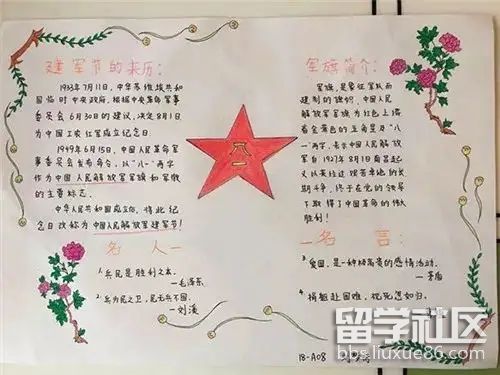 建军节的来历:
1933年7月11日,中华苏维埃共和
国临时中央政府,根据中央革命军事
委员会6月30日的建议,决定8月1日
为中国工农红军成立纪念日.
1949年6月15日,中国人民革命军
事委员会发布命令,以“八一”两字
作为中国人民解放军军旗和军徽
的主要标志.
中华人民共和国成立后,将此纪
念日改称为中国人民解放军建军节!
八一
军旗简介:
军旗,是象征军队而
建制的旗帜,中国人民
解放军军旗为红色上缀
着金黄色的五角星及“八
一”两字,表示中国人民解放
军自1927年8月1日南昌起
义以来经过
的长
期斗争,终于在党的领导
下取得了中国革命的伟大
胜利!
名人一
1.兵民是胜利之本.
—毛泽东
2.兵为民之卫,民无兵不固.
一名言:
3.爱国,是一种极高贵的感情活动.
—茅盾
4.捐躯赴国难,视死忽如归.
18-A08
留学社区
bbs.liuxue86.com